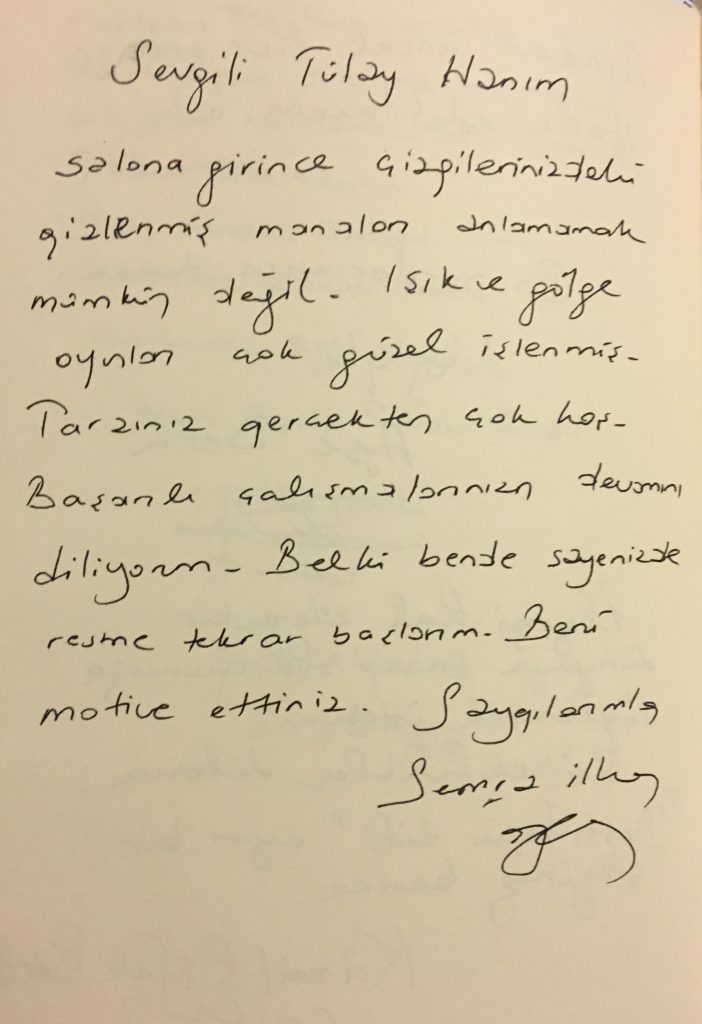 Sevgili Tülay Hanım
salona girince çizgilerinizdeki
gizlenmiş manaları anlamamak
mümkün değil. Işık ve gölge
oyunları çok güzel işlenmiş.
Tarzınız gerçekten çok hoş.
Başarılı çalışmalarınızın devamını
diliyorum. Belki bende sayenizde
resme tekrar başlarım. Beni
motive ettiniz. Saygılarımla